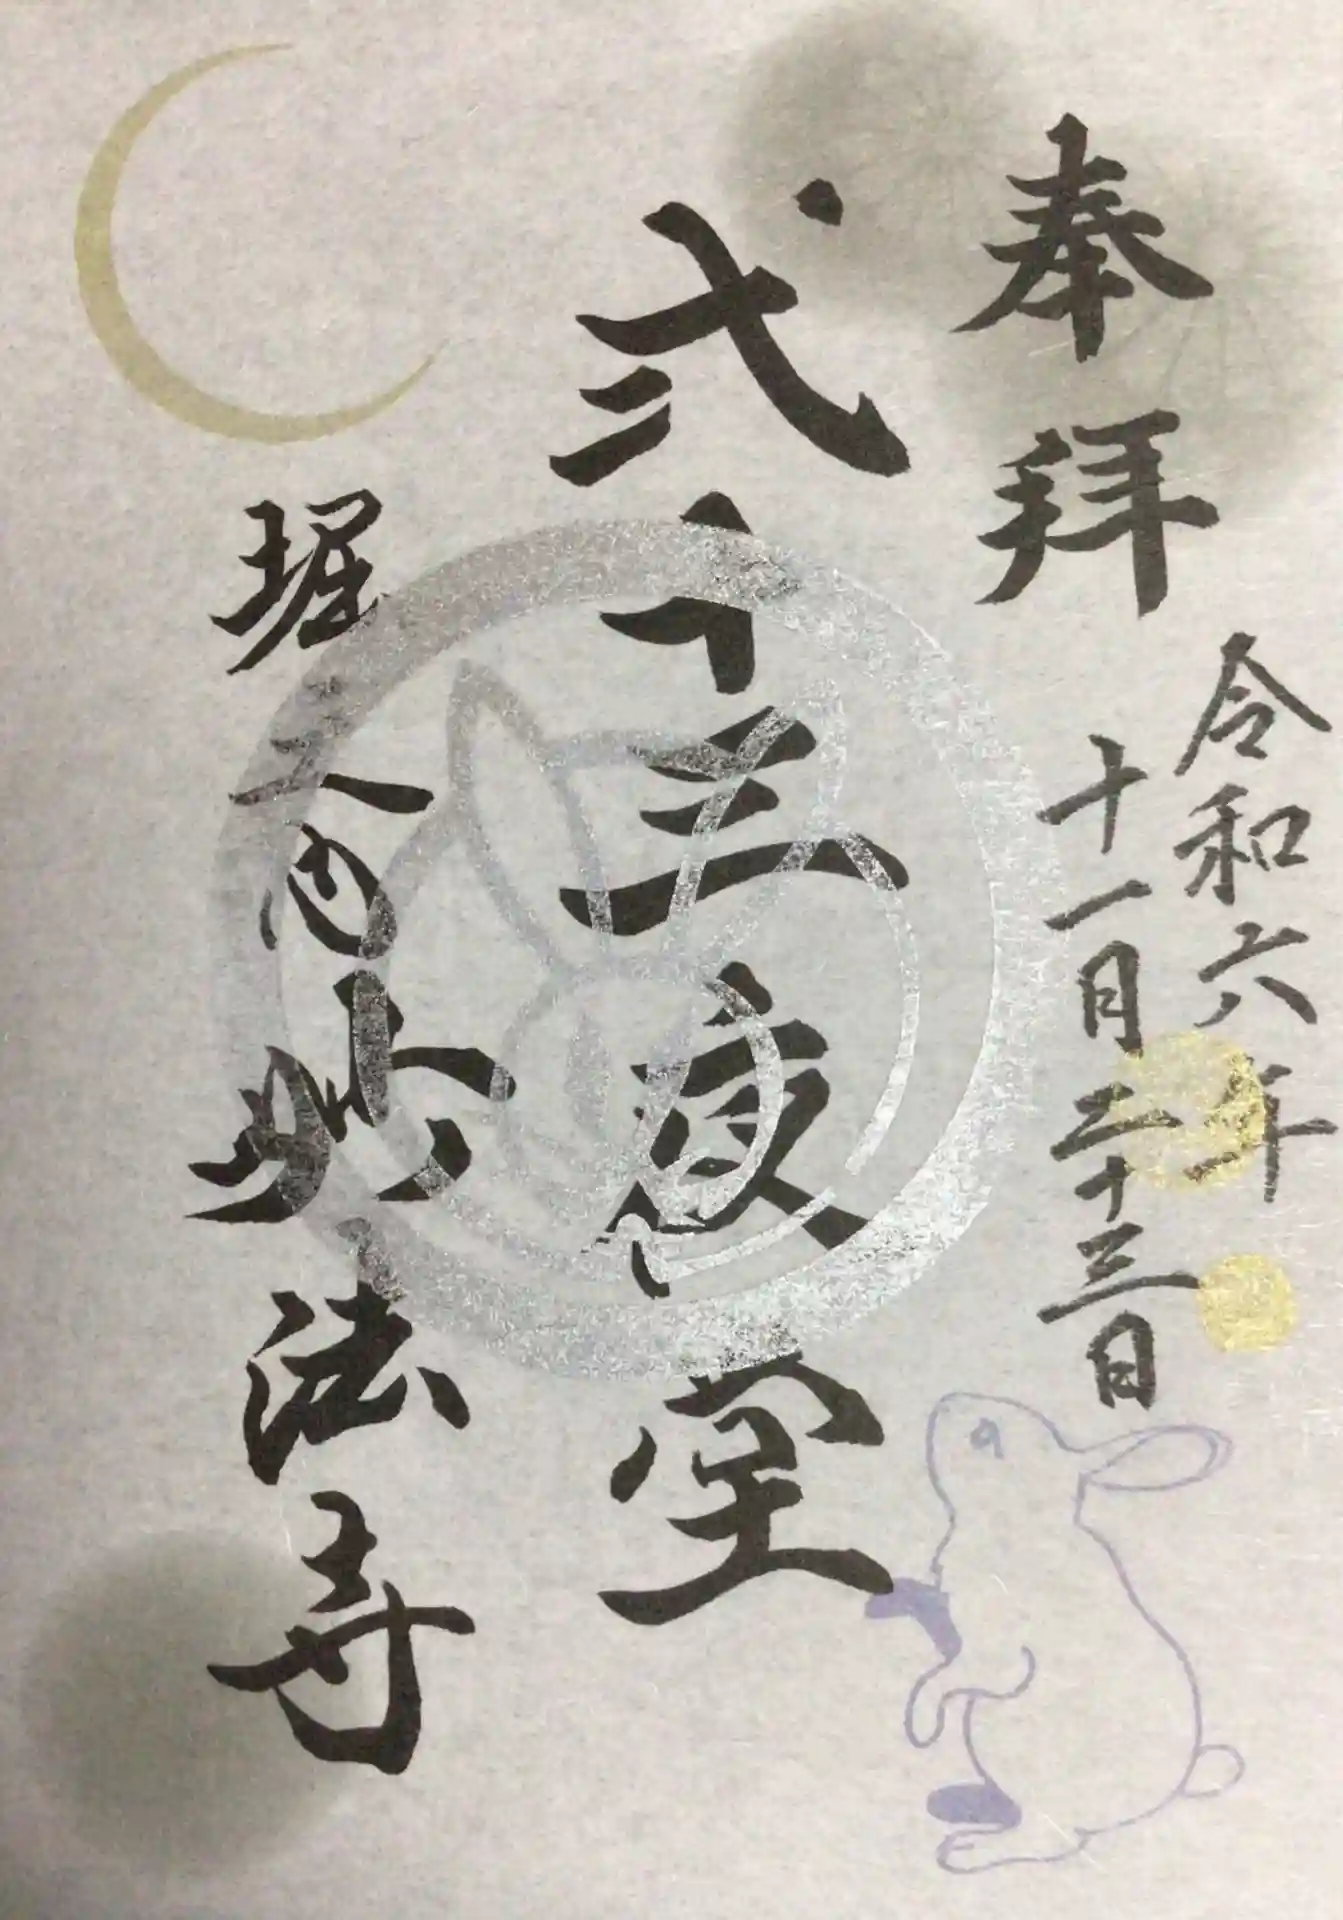 奉拝
令和六年
十一月二十三日
弐十三夜堂
堀之内妙法寺